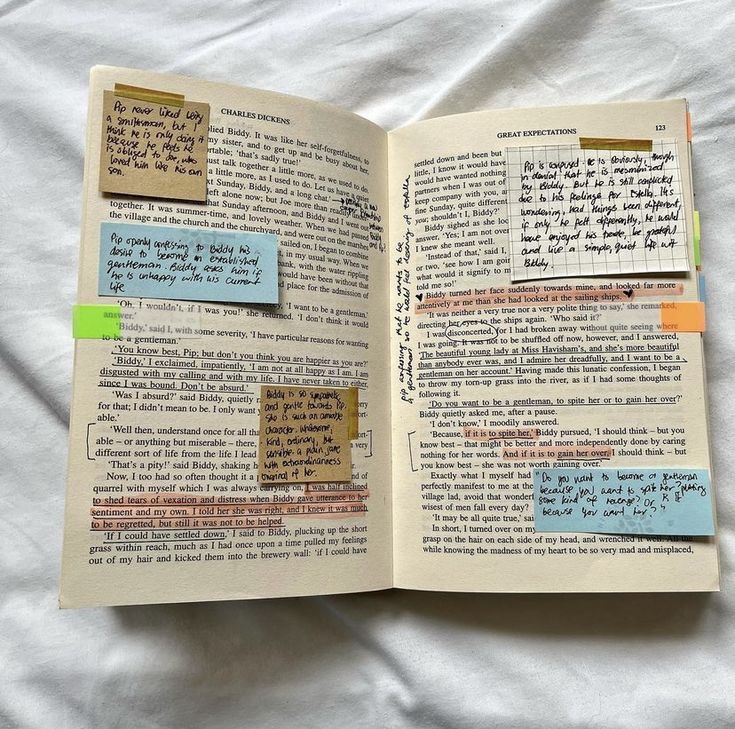 CHARLES DICKENS
Pip never liked being
a smithsman, but I
think he is only doing it
because he feels he
is obliged to Joe, who
loved him like his own
son.
plied Biddy. It was like her self-forgetfulness, to
my sister, and to get up and be busy about her,
ortable; 'that's sadly true!'
ust talk together a little more, as we used to do.
a little more, as I used to do. Let us have a quiet
t Sunday, Biddy, and a long chat.'
left alone now; but Joe more than
that Sunday afternoon, and Biddy and I went out
together. It was summer-time, and lovely weather. When we had passed
the village and the church and the churchyard, and were out on the marshes
Pip openly confessing to Biddy his
desire to become an established
gentleman. Biddy asks him if
he is unhappy with his current
life
sailed on, I began to combine
, in my usual way. When we
bank, with the water rippling
would have been without that
and place for the admission of
'I want to be a gentleman.'
'Oh, I wouldn't, if I was you!' she returned. 'I don't think it would
answer.'
'Biddy,' said I, with some severity, 'I have particular reasons for wanting
to be a gentleman.'
'You know best, Pip; but don't you think you are happier as you are?'
'Biddy,' I exclaimed, impatiently, 'I am not at all happy as I am. I am
disgusted with my calling and with my life. I have never taken to either,
since I was bound. Don't be absurd.'
'Was I absurd?' said Biddy, quietly
for that; I didn't mean to be. I only want
able.'
'Well then, understand once for all tha
able – or anything but miserable – there,
different sort of life from the life I lead
'That's a pity!' said Biddy, shaking h
Now, I too had so often thought it a
Biddy is so sympathetic
and gentle towards Pip.
She is such an amiable
character. Wholesome,
kind, ordinary, but
sensible. a plain jane
with extraordinariness
quarrel with myself which I was always carrying on, I was half inclined
to shed tears of vexation and distress when Biddy gave utterance to her
sentiment and my own. I told her she was right, and I knew it was much
to be regretted, but still it was not to be helped.
'If I could have settled down,' I said to Biddy, plucking up the short
grass within reach, much as I had once upon a time pulled my feelings
out of my hair and kicked them into the brewery wall: 'if I could have
GREAT EXPECTATIONS
123
settled down and been but
little, I know it would have
would have wanted nothing
partners when I was out of
keep company with you, an
fine Sunday, quite different
you shouldn't I, Biddy?'
Biddy sighed as she look
answer, 'Yes; I am not over
I knew she meant well.
'Instead of that,' said I,
or two, 'see how I am goin
what would it signify to m
told me so!'
Pip is confused. He is obviously, though
in denial that he is mesmerized
by Biddy. But he is still conflicted
due to his feelings for Estella. It's
wondering, had things been different,
if only he felt differently, he would
have enjoyed his trade, be grateful
and live a simple, quiet life w/
Biddy.
Biddy turned her face suddenly towards mine, and looked far more
attentively at me than she had looked at the sailing ships.
'It was neither a very true nor a very polite thing to say,' she remarked,
directing her eyes to the ships again. 'Who said it?'
I was disconcerted, for I had broken away without quite seeing where
I was going. It was not to be shuffled off now, however, and I answered,
'The beautiful young lady at Miss Havisham's, and she's more beautiful
than anybody ever was, and I admire her dreadfully, and I want to be a
gentleman on her account.' Having made this lunatic confession, I began
to throw my torn-up grass into the river, as if I had some thoughts of
following it.
'Do you want to be a gentleman, to spite her or to gain her over?'
Biddy quietly asked me, after a pause.
'I don't know,' I moodily answered.
'Because, if it is to spite her,' Biddy pursued, 'I should think – but you
know best – that might be better and more independently done by caring
nothing for her words. And if it is to gain her over, I should think – but
you know best – she was not worth gaining over.'
Exactly what I myself had
perfectly manifest to me at the
village lad, avoid that wonder
wisest of men fall every day?
'It may be all quite true,' sai
In short, I turned over on m
"Do you want to become a gentleman
because you want to spite her?
some kind of revenge? Or
because you want her?"
grasp on the hair on each side of my head, and wrenched it well. All the
while knowing the madness of my heart to be so very mad and misplaced,